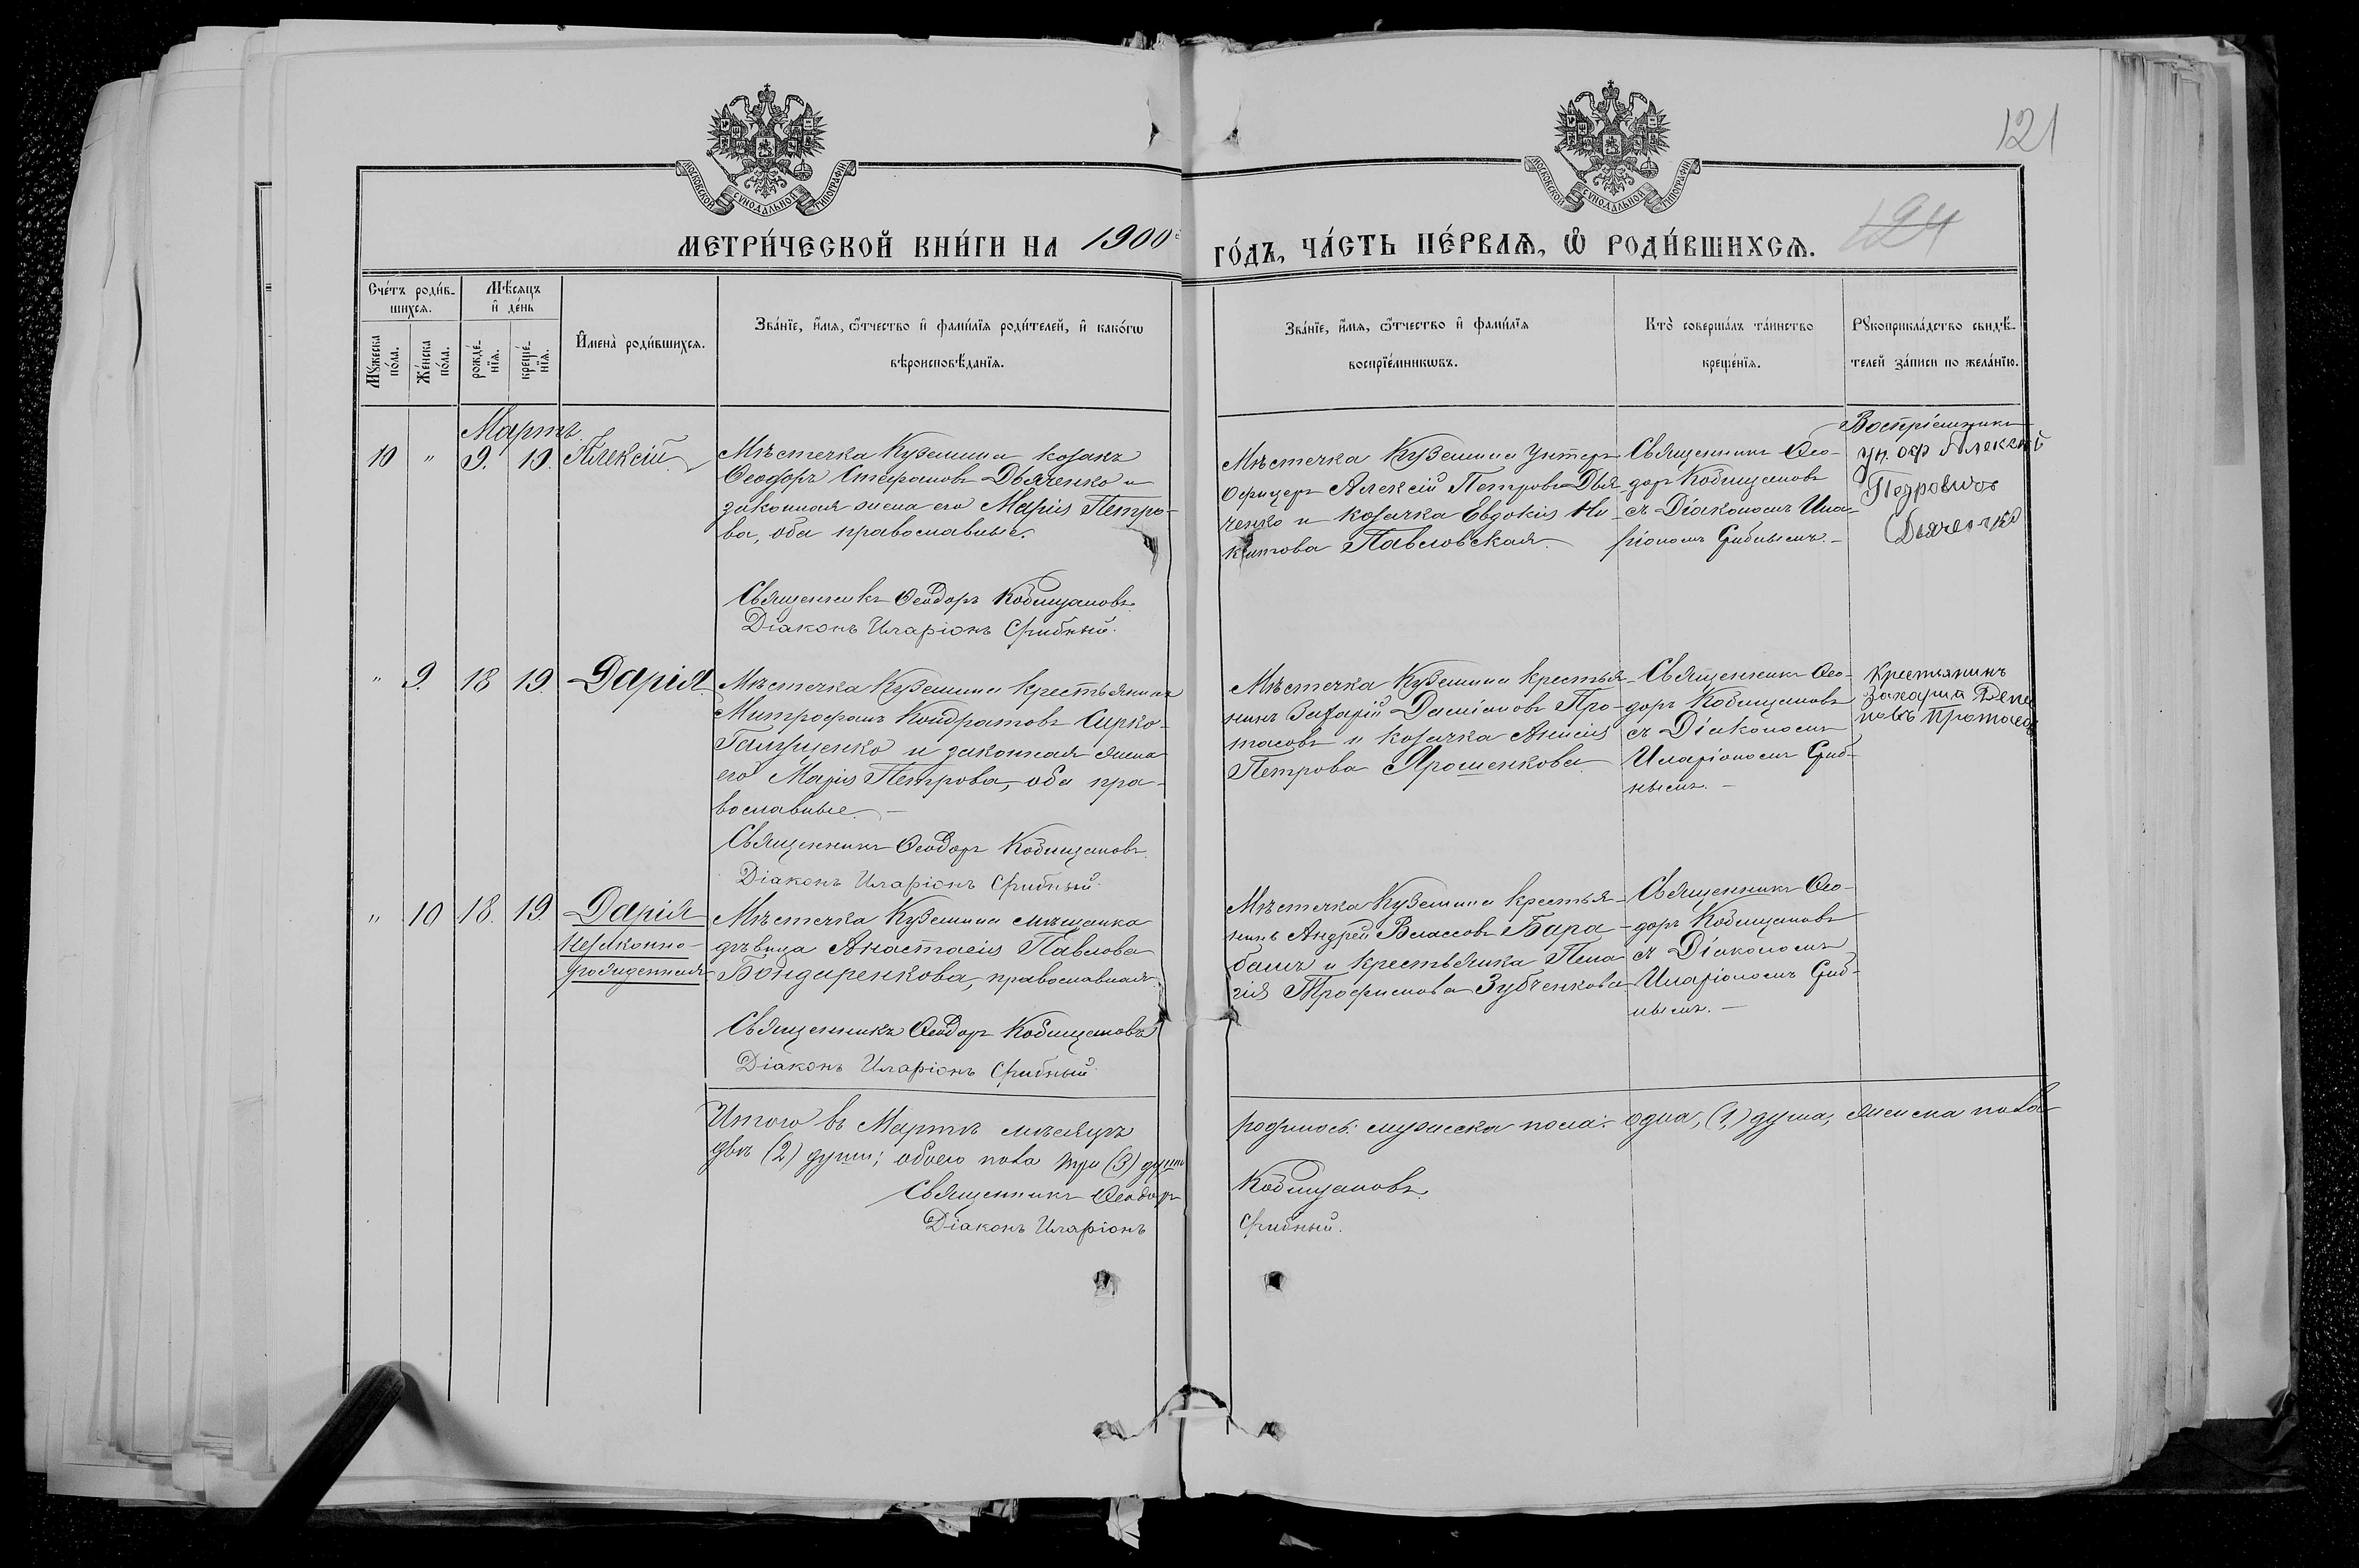 121
124
МОСКОВСКОЙ СУНОДАЛЬНОЙ ТИПОГРАФІИ
МОСКОВСКОЙ СУНОДАЛЬНОЙ ТИПОГРАФІИ
МЕТРИ́ЧЕСКОЙ КНИ́ГИ НА 1900 ГО́ДЪ, ЧА́СТЬ ПЕ́РВАѦ, Ѡ РОДИ́ВШИХСѦ.
Сче́тъ роди́в-
шихсѧ.
Мꙋжеска по́ла.
Же́нска по́ла.
Мѣ́сѧцъ
и҆ де́нь
рожде́-
нїѧ.
креще́-
нїѧ.
И҆мена̀ роди́вшихсѧ.
Зва́нїе, и҆́мѧ, ѻ҆́тчество и҆ фами́лїѧ роди́телей, и҆ како́гѡ
вѣроисповѣ́данїѧ.
Зва́нїе, и҆́мѧ, ѻ҆́тчество и҆ фами́лїѧ
воспрїе́мникѡвъ.
Кто̀ соверша́лъ та́инство
креще́нїѧ.
Рꙋкоприкла́дство свидѣ́-
телей за́писи по жела́нїю.
Мартъ.
10 " 9. 19. Алексій
Мѣстечка Куземина козакъ
Ѳеодоръ Стефановъ Дьяченко и
законная жена его Марія Петро-
ва, оба православные.
Священникъ Ѳеодоръ Кобищановъ.
Діаконъ Иларіонъ Срибный.
Мѣстечка Куземина Унтеръ
Офицеръ Алексій Петровъ Дья-
ченко и козачка Евдокія Ни-
китова Павловская.
Священникъ Ѳео-
доръ Кобищановъ
съ Діакономъ Ила-
ріономъ Срибнымъ. -
Воспріемникъ
ун. оф Алексей
Петровичъ
Дьяченко
" 9. 18 19. Дарія
Мѣстечка Куземина крестьянинъ
Митрофанъ Кондратовъ Сирко-
и законная жена
его Марія Петрова, оба пра-
вославные. -
Священникъ Ѳеодоръ Кобищановъ.
Діаконъ Иларіонъ Срибный.
Мѣстечка Куземина крестья-
нинъ Захарій Даміановъ Про-
тасовъ и козачка Анисія
Петрова Ярошенкова.
Священникъ Ѳео-
доръ Кобищановъ
съ Діакономъ
Иларіономъ Сриб-
нымъ. -
Крестьянинъ
Захария
Протасов
" 10 18. 19. Дарія
незаконно-
рожденная.
Мѣстечка Куземина мѣщанка
дѣвица Анастасія Павлова
Бондаренкова, православная.
Священникъ Ѳеодоръ Кобищановъ
Діаконъ Иларіонъ Срибный.
Мѣстечка Куземина крестья-
нинъ Андрей Власовъ Бара-
башъ и крестьянка Пела-
гія Трофимова Зубченкова
Священникъ Ѳео-
доръ Кобищановъ
съ Діакономъ
Иларіономъ Сриб-
нымъ. -
Итого въ Мартѣ мѣсяцѣ родилось: мужеска пола: одна, (1) душа, женска пола
двѣ (2) души; обоего пола три (3) души
Священникъ Ѳеодоръ Кобищановъ.
Діаконъ Иларіонъ Срибный.